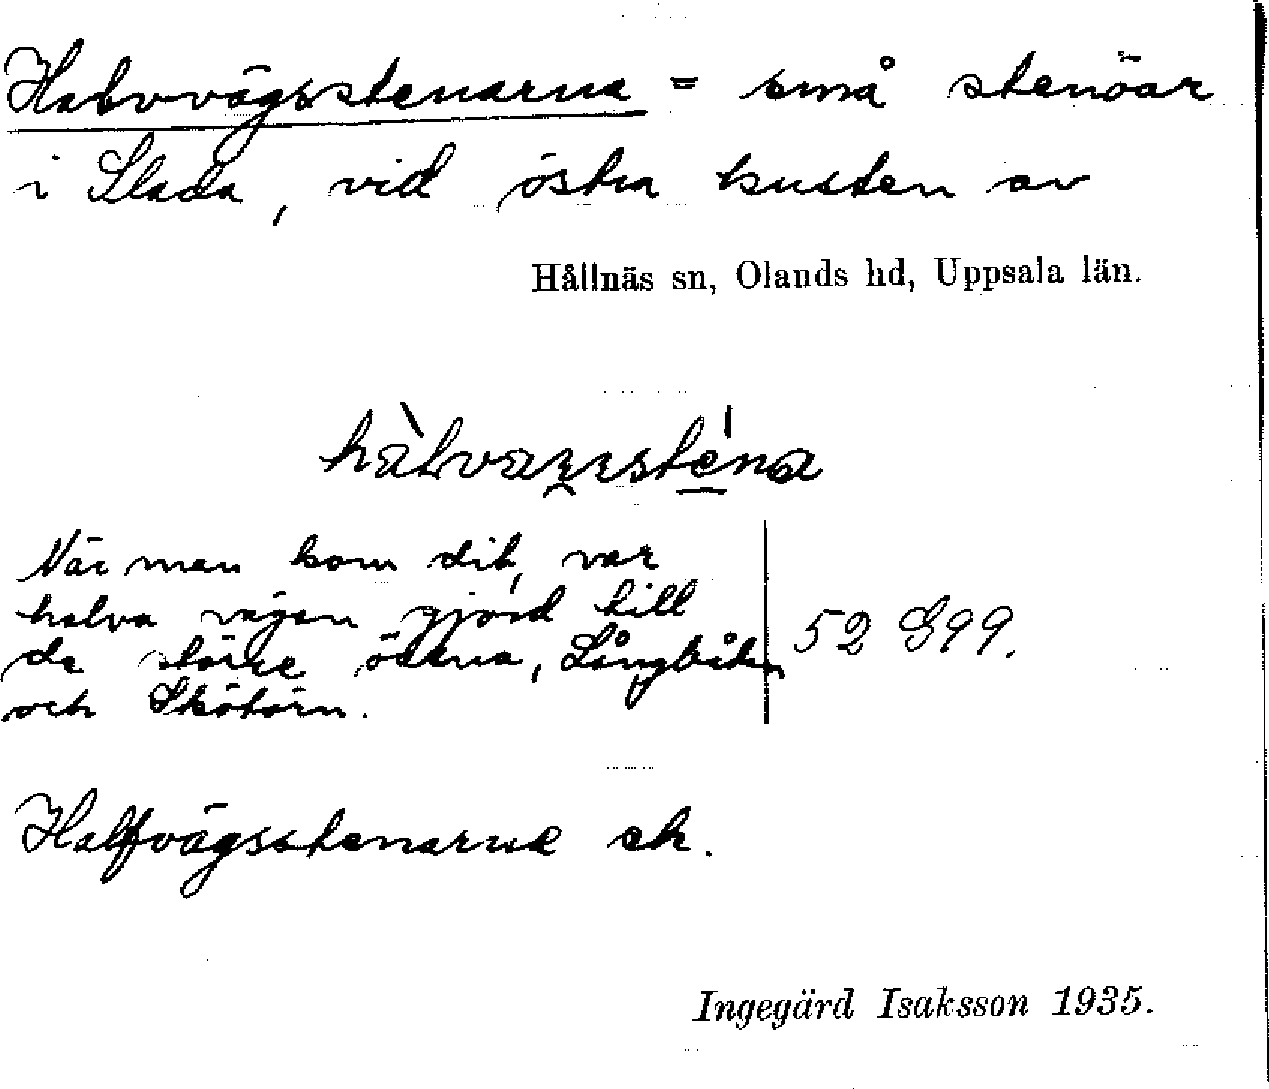 Halvvägsstenarna = små stenöar
i Slada, vid östra kusten av
Hållnäs sn, Olands hd, Uppsala län.
När man kom dit, var
halva vägen gjord till
de större öarna, Långbåden
och Skötörn.
52 S99.
Halfvägsstenarne ek.
Ingegärd Isaksson 1935.